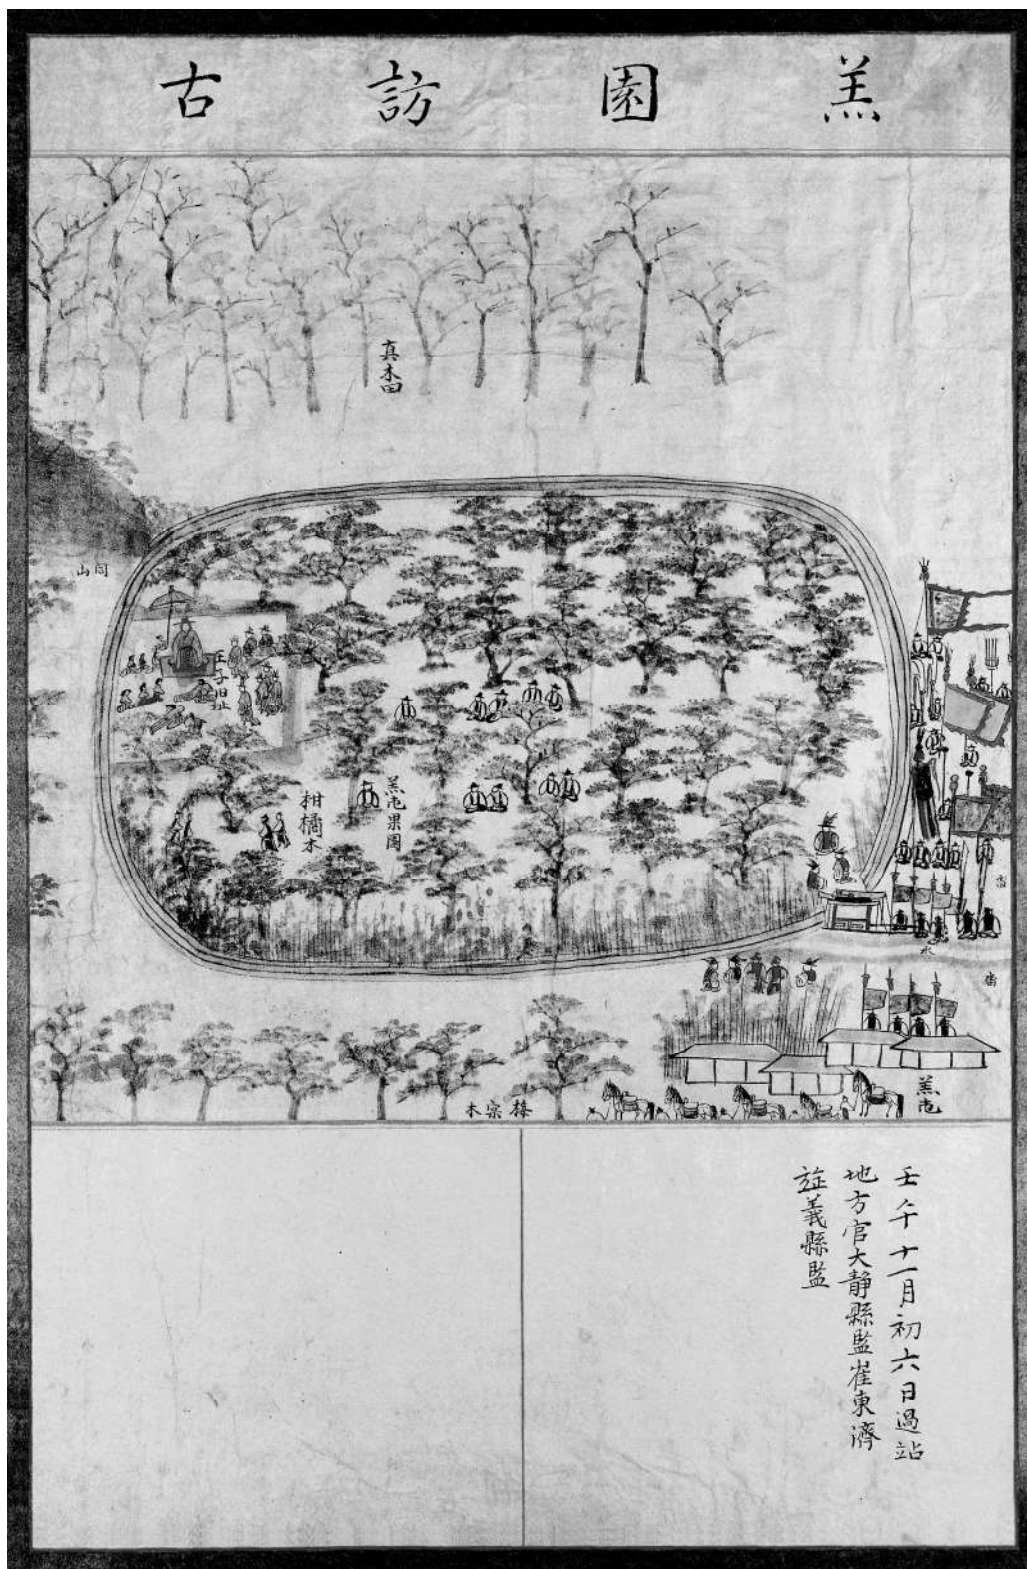 羔園訪古
真木田
王子旧址
羔屯果園
柑橘木
畓
水
畓
羔屯
壬午十一月初六日過站
地方官大靜縣監崔東濟
旌義縣監